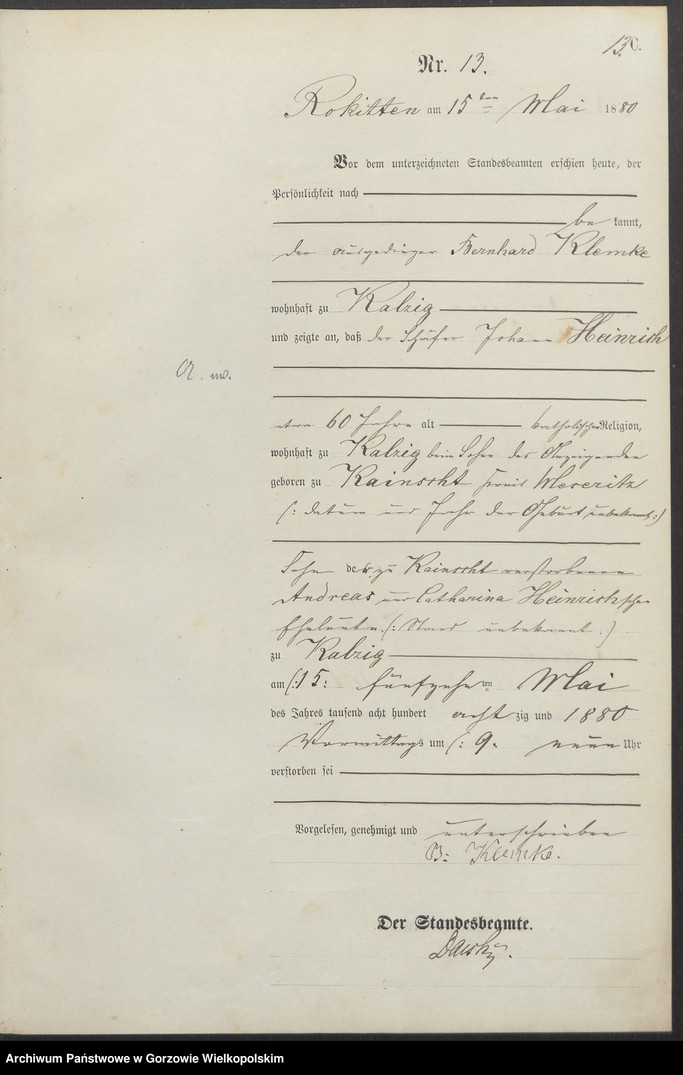 13
C.
Nr. 13.
Rokitten am 15ten Mai 1880
Vor dem unterzeichneten Standesbeamten erschien heute, der
Persönlichkeit nach
be kannt,
der Ausgedinger Bernhard Klemke
wohnhaft zu Kalzig
und zeigte an, daß der Schäfer Johann Heinrich
A. 
etwa 60 Jahre alt katholischer Religion,
wohnhaft zu Kalzig beim Sohne des Anzeigenden
geboren zu Rainscht Kreis Meseritz
(: Datum und Jahr der Geburt unbekannt :)
Sohn der zu Rainscht verstorbenen
Andreas und Catharina Heinrichschen
Eheleute (: Stand unbekannt :)
zu Kalzig
am (: 15 : fünfzehnten Mai
des Jahres tausend acht hundert achtzig und 1880
Vormittags um (: 9. neun Uhr
verstorben sei
Vorgelesen, genehmigt und unterschrieben
B: Klemke.
Der Standesbeamte.
Archiwum Państwowe w Gorzowie Wielkopolskim